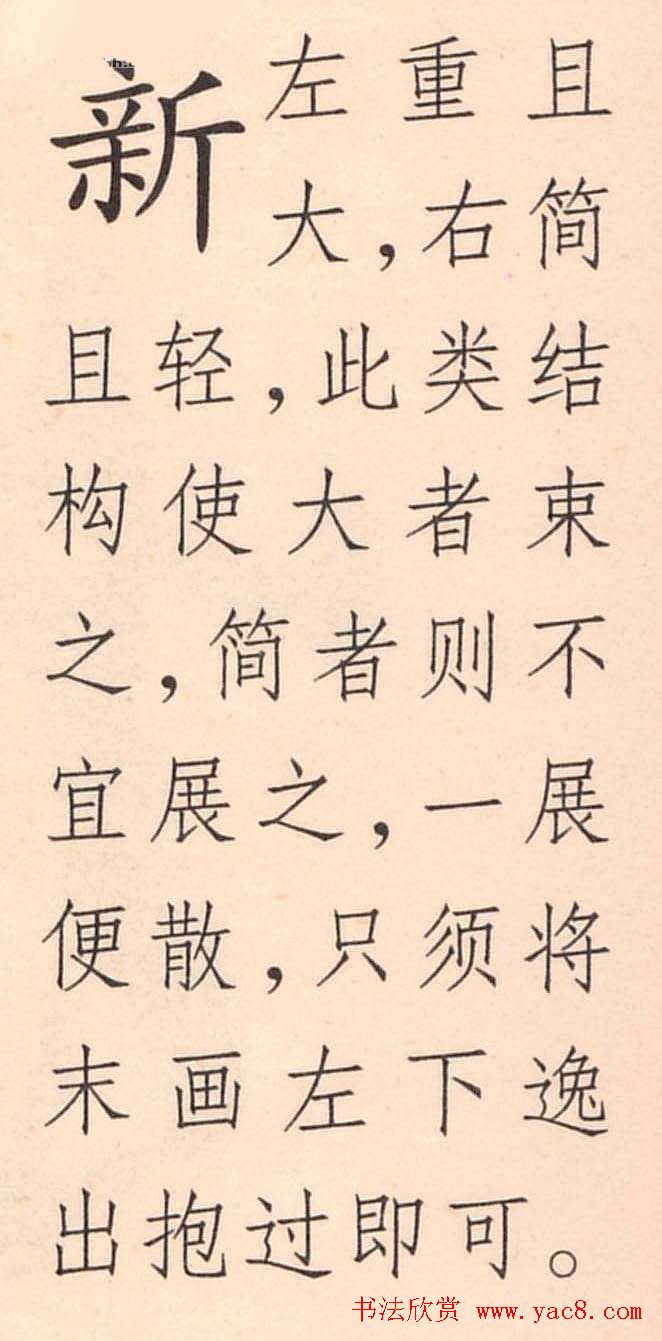 新
左重且
大，右简
且轻，此类结
构使大者束
之，简者则不
宜展之，一展
便散，只须将
末画左下逸
出抱过即可。
书法欣赏 www.yac8.com